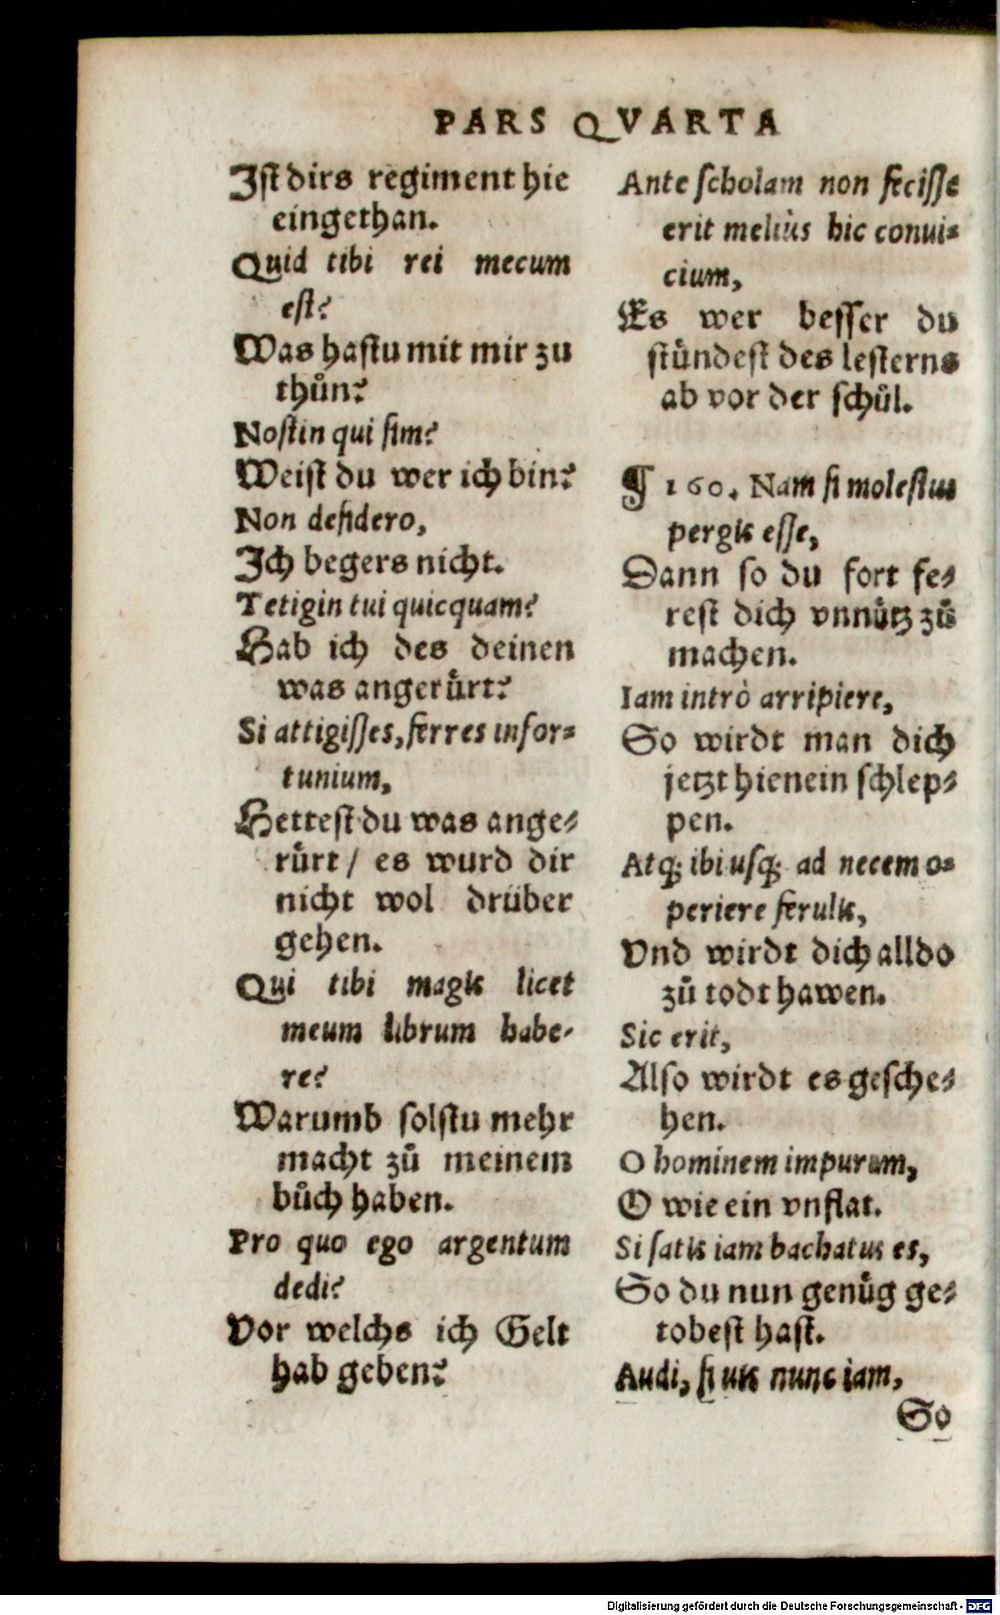 PARS QVARTA
Ist dirs regiment hie
eingethan.
Quid tibi rei mecum
est?
Was hastu mit mir zu
thůn?
Nostin qui sim?
Weist du wer ich bin?
Non desidero,
Ich begers nicht.
Tetigin tui quicquam?
Hab ich des deinen
was angerürt?
Si attigisses, ferres infor-
tunium,
Hettest du was ange-
rürt / es wurd dir
nicht wol drüber
gehen.
Qui tibi magis licet
meum librum habe-
re?
Warumb solstu mehr
macht zů meinem
bůch haben.
Pro quo ego argentum
dedi?
Vor welchs ich Gelt
hab geben?
Ante scholam non fecisse
erit meliùs hic conui-
cium,
Es wer besser du
stündest des lesterns
ab vor der schůl.
¶ 160. Nam si molestus
pergis esse,
Dann so du fort fe-
rest dich vnnütz zů
machen.
Iam intrò arripiere,
So wirdt man dich
jetzt hienein schlep-
pen.
Atq; ibi usq; ad necem o-
periere ferulis,
Vnd wirdt dich alldo
zů todt hawen.
Sic erit,
Also wirdt es gesche-
hen.
O hominem impurum,
O wie ein vnflat.
Si satis iam bachatus es,
So du nun genůg ge-
tobest hast.
Audi, si uis nunc iam,
So
Digitalisierung gefördert durch die Deutsche Forschungsgemeinschaft - DFG